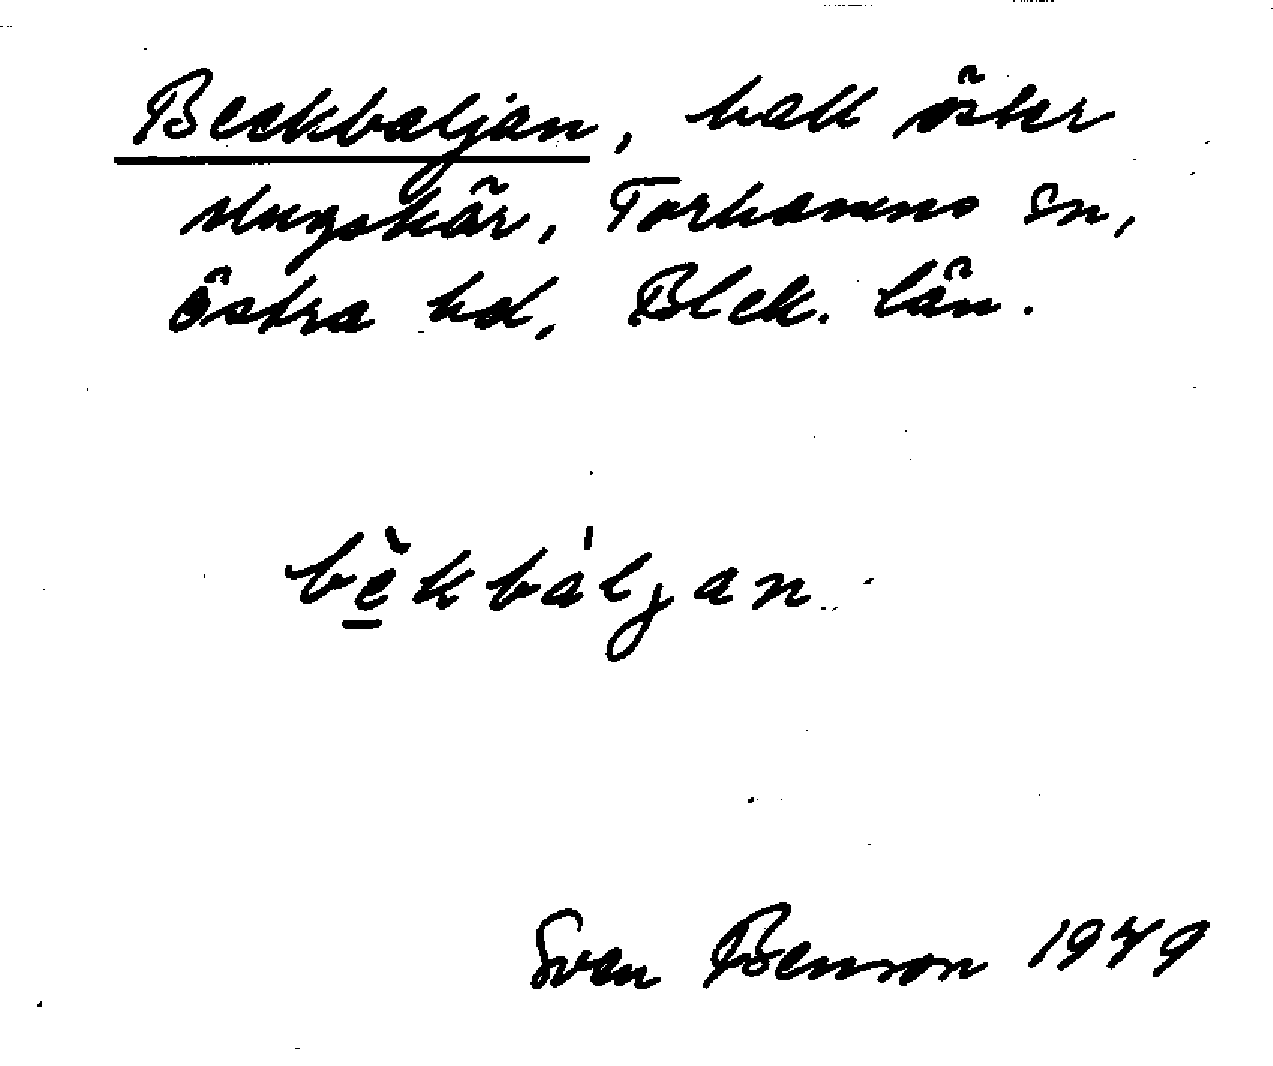 Beckbaljan, hall öster
Stugskär, Torhamns sn,
Östra hd, Blek. län.
bèkbáljan
Sven Benson 1949